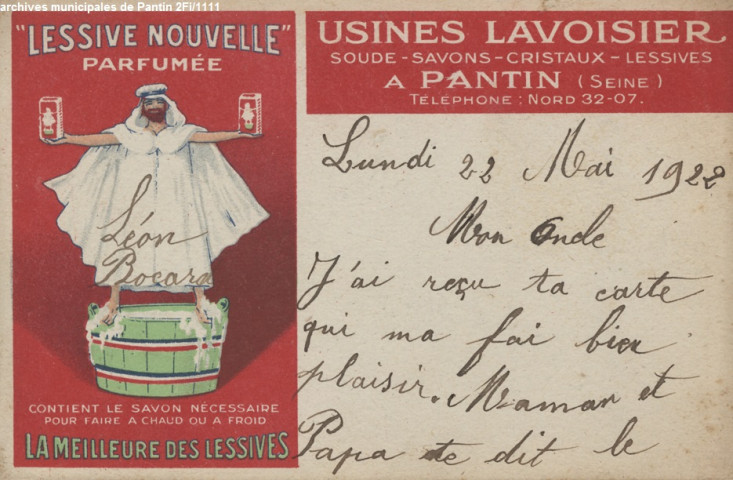 archives municipales de Pantin 2Fi/1111
"LESSIVE NOUVELLE"
PARFUMÉE
Léon
Bocara
CONTIENT LE SAVON NÉCESSAIRE
POUR FAIRE A CHAUD OU A FROID
LA MEILLEURE DES LESSIVES
USINES LAVOISIER
SOUDE-SAVONS-CRISTAUX-LESSIVES
A PANTIN (SEINE)
TÉLÉPHONE : NORD 32-07.
Lundi 22 Mai 1922
Mon Oncle
J'ai reçu ta carte
qui ma fai bien
plaisir. Maman et
Papa te dit le